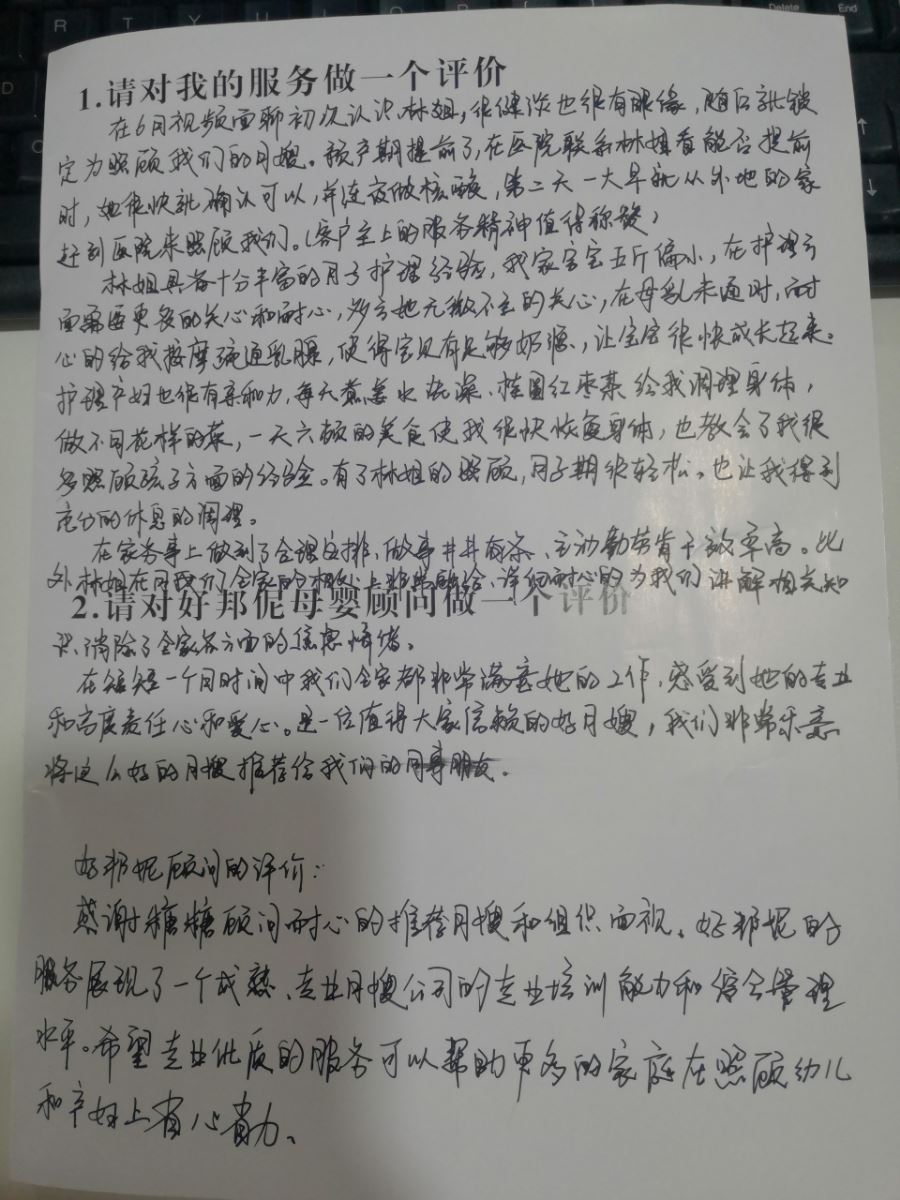 1.请对我的服务做一个评价
在6月视频面聊初次认识林姐，很健谈也很有眼缘，随后就锁
定为照顾我们的月嫂。预产期提前了，在医院联系林姐看能否提前
时，她很快就确认可以，并连夜做核酸，第二天一大早就从外地的家
赶到医院来照顾我们。（客户至上的服务精神值得称赞）
林姐具备十分丰富的月子护理经验，我家宝宝五斤偏小，在护理方
面需要更多的关心和耐心，多亏她无微不至的关心，在母乳未通时，耐
心的给我按摩疏通乳腺，使得宝贝有足够奶源，让宝宝很快成长起来。
护理产妇也很有亲和力，每天煮姜水洗澡、桂圆红枣茶给我调理身体，
做不同花样的菜，一天六顿的美食使我很快恢复身体，也教会了我很
多照顾孩子方面的经验。有了林姐的照顾，月子期很轻松。也让我得到
充分的休息的调理。
在家务事上做到了合理安排，做事井井有条、主动勤劳肯干效率高。此
外林姐在同我们全家的相处上非常融洽，详细耐心的为我们讲解相关知
2.请对好邦伲母婴顾问做一个评价
识，消除了全家各方面的焦虑情绪。
在短短一个月时间中我们全家都非常满意她的工作，感受到她的专业
和高度责任心和爱心。是一位值得大家信赖的好月嫂，我们非常乐意
将这么好的月嫂推荐给我们的同事朋友。
好邦妮顾问的评价：
感谢糖糖顾问耐心的推荐月嫂和组织面视、好邦妮的
服务展现了一个成熟、专业月嫂公司的专业培训能力和综合管理
水平。希望专业优质的服务可以帮助更多的家庭在照顾幼儿
和产妇上省心省力、